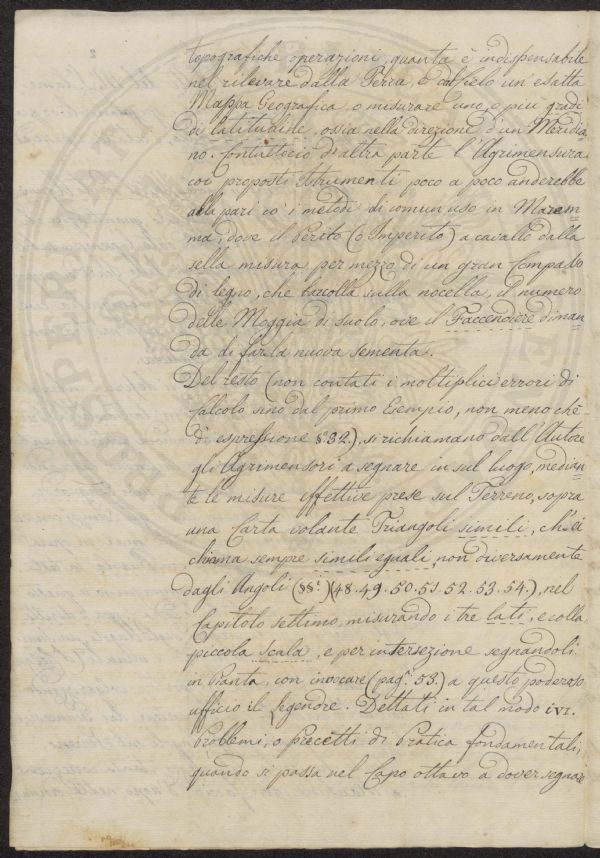 topografiche operazioni, quanta è indispensabile
nel rilevare dalla Terra, e dal Cielo un esatta
Mappa Geografica, o misurare uno, e più gradi
di latitudine, ossia nella direzione d'un Meridia
no. Contuttociò d'altra parte l'Agrimensura
coi proposti Istrumenti poco a poco anderebbe
alla pari co' i metodi di comun uso in Marem
ma, dove il Perito (o Imperito) a cavallo dalla
sella misura per mezzo di un gran Compasso
di legno, che barcolla sulla nocella, il numero
delle Moggia di suolo, ove il Faccendiere diman
da di far la nuova sementa.
Del resto (non contati i moltiplici errori di
Calcolo sino dal primo Esempio, non meno che
d'espressione §. 32.), si richiamano dall'Autore
gli Agrimensori a segnare in sul luogo, median
te le misure effettive prese sul Terreno, sopra
una Carta volante Triangoli simili, ch'ei
chiama sempre simili eguali, non diversamente
dagli Angoli (§§i) (48. 49. 50. 51. 52. 53. 54.), nel
Capitolo settimo, misurando i tre lati, e colla
piccola scala, e per intersezione segnandoli
in Pianta, con invocare (pag. 53.) a questo poderoso
ufficio il Legendre. Dettati in tal modo i VI.
Problemi, o precetti di Pratica fondamentali,
quando si passa nel Capo ottavo a dover segnare